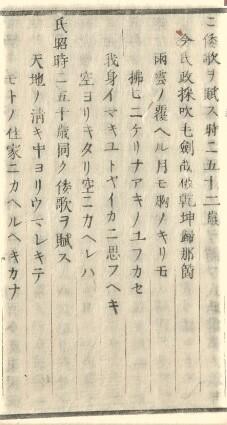 ニ倭歌ヲ賦ス時ニ五十二歳
今氏政採吹毛劍截破乾坤歸那箇
雨雲ノ覆ヘル月モ胸ノキリモ
拂ヒニケリナアキノユフカセ
我身イマキユトヤイカニ思フヘキ
空ヨリキタリ空ニカヘレハ
氏昭時ニ五十歳同ク倭歌ヲ賦ス
天地ノ清キ中ヨリウマレキテ
モトノ住家ニカヘルヘキカナ